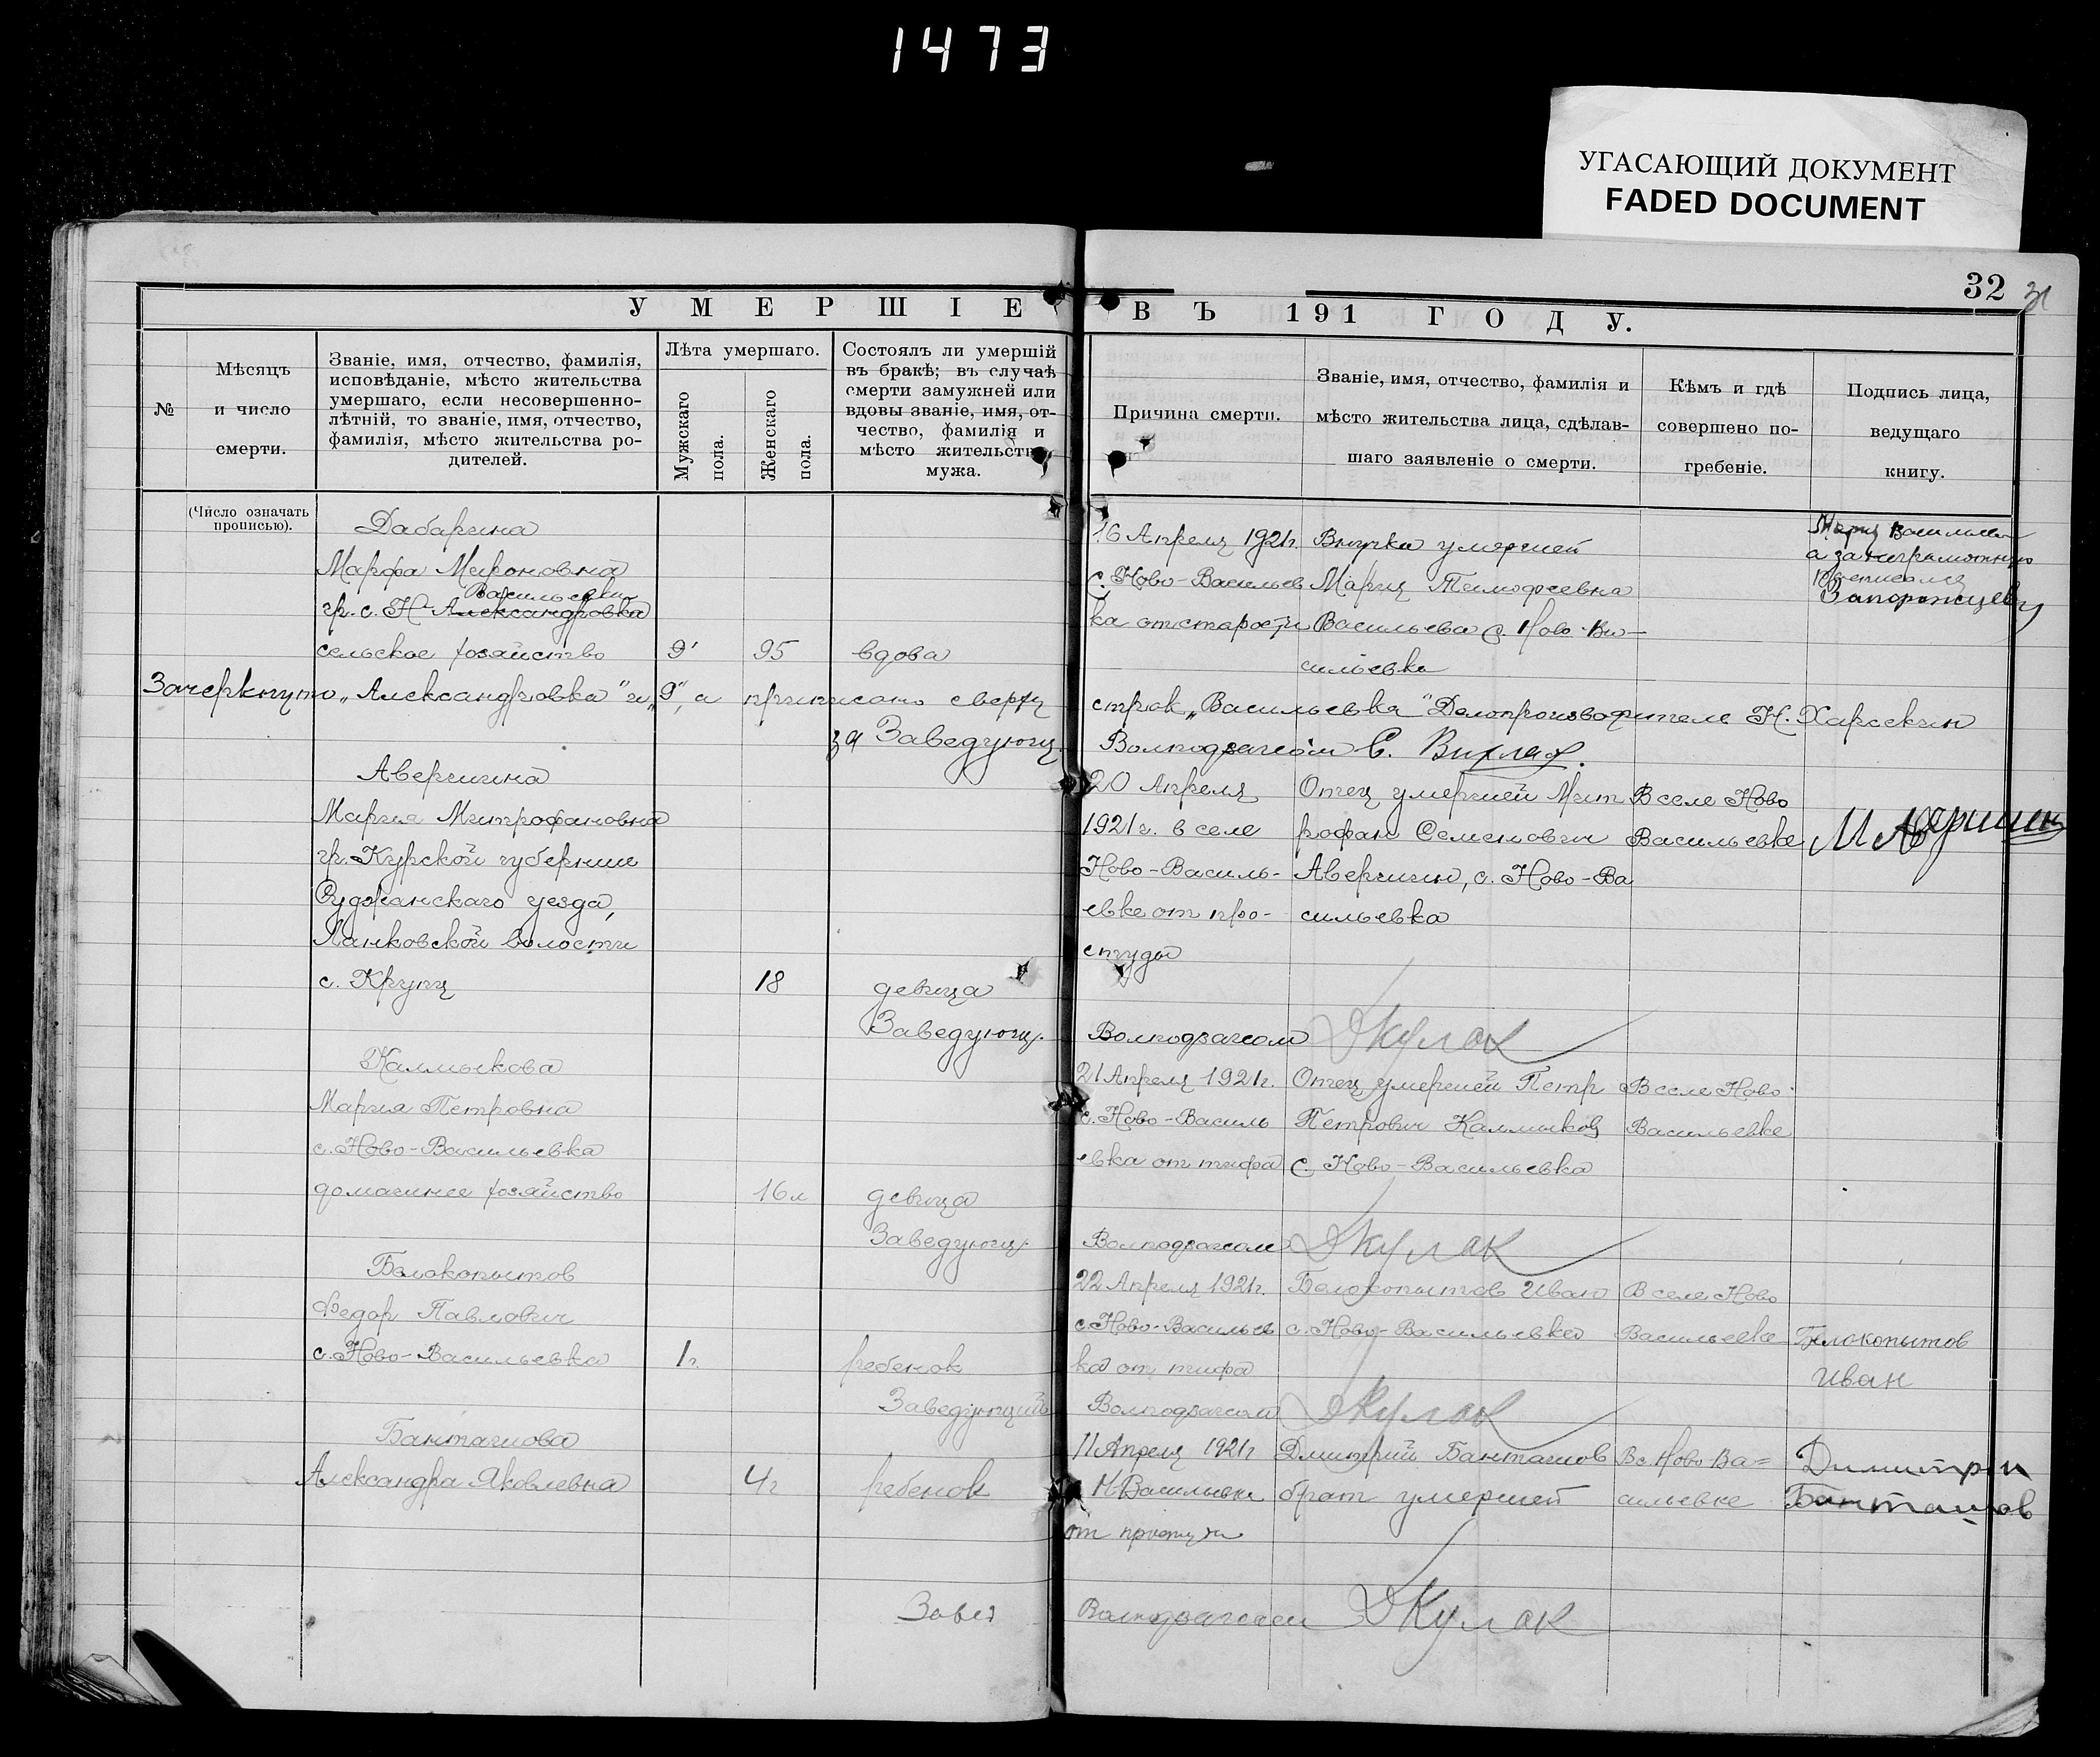 1473
УГАСАЮЩИЙ ДОКУМЕНТ
FADED DOCUMENT
32
31
УМЕРШІЕ ВЪ 191 ГОДУ.
№
Мѣсяцъ
и число
смерти.
Званіе, имя, отчество, фамилія,
исповѣданіе, мѣсто жительства
умершаго, если несовершенно-
лѣтній, то званіе, имя, отчество,
фамилія, мѣсто жительства ро-
дителей.
Лѣта умершаго.
Мужскаго
пола.
Женскаго
пола.
Состоялъ ли умершій
въ бракѣ; въ случаѣ
смерти замужней или
вдовы званіе, имя, от-
чество, фамилія и
мѣсто жительств
мужа.
Причина смерти.
Званіе, имя, отчество, фамилія и
мѣсто жительства лица, сдѣлав-
шаго заявленіе о смерти.
Кѣмъ и гдѣ
совершено по-
гребеніе.
Подпись лица,
ведущаго
книгу.
(Число означать
прописью).
Дабагина
Марфа Мироновна
Васильевка
гр. с. Н-Александровка
сельское хозяйство
9
95
вдова
16 Апреля 1921г.
с. Ново-Васильев
ка от старости
Внучка умершей
Мария Тимофеевна
Васильева с. Ново-Ва-
сильевка
Мария Васильева
а за неграмотную
расписался
Запорожцев
Зачеркнуто „Александровка" и „9", а приписано сверху
строк „Васильевка" Делопроизводитель Н. Харсекин
за Заведующ.
Волподзагсом С.
Авершина
Мария Митрофановна
гр. Курской губернии
Суджанскаго уезда,
волости
с. Крупц
18
девица
20 Апреля
1921г. в селе
Ново-Василь-
евке от про-
студы
Отец умершей Мит
рофан Семенович
Авершин, с. Ново-Ва
сильевка
В селе Ново
Васильевке
М Авершин
Заведующ.
Волподзагсом Кулак
Калмыкова
Мария Петровна
с. Ново-Васильевка
домашнее хозяйство
16 л
девица
21 Апреля 1921г.
с. Ново-Василь
евка от тифа
Отец умершей Петр
Петрович Калмыков
с. Ново-Васильевка
В селе Ново-
Васильевке
Заведующ.
Волподзагсом Кулак
Белокопытов
Федор Павлович
с. Ново-Васильевка
1г.
ребенок
22 Апреля 1921г.
с. Ново-Васильев
ка от тифа
Белокопытов Иван
с. Ново-Васильевке
В селе Ново
Васильевке
Белокопытов
Иван
Заведующий
Волподзагсом Кулак
Банташова
Александра Яковлевна
4г
ребенок
11 Апреля 1921г
Н-Васильевке
от простуды
Дмитрий Банташов
брат умершей
В с. Ново-Ва=
сильевке
Димитри
Банташов
Завед
Волподзагсом Кулак